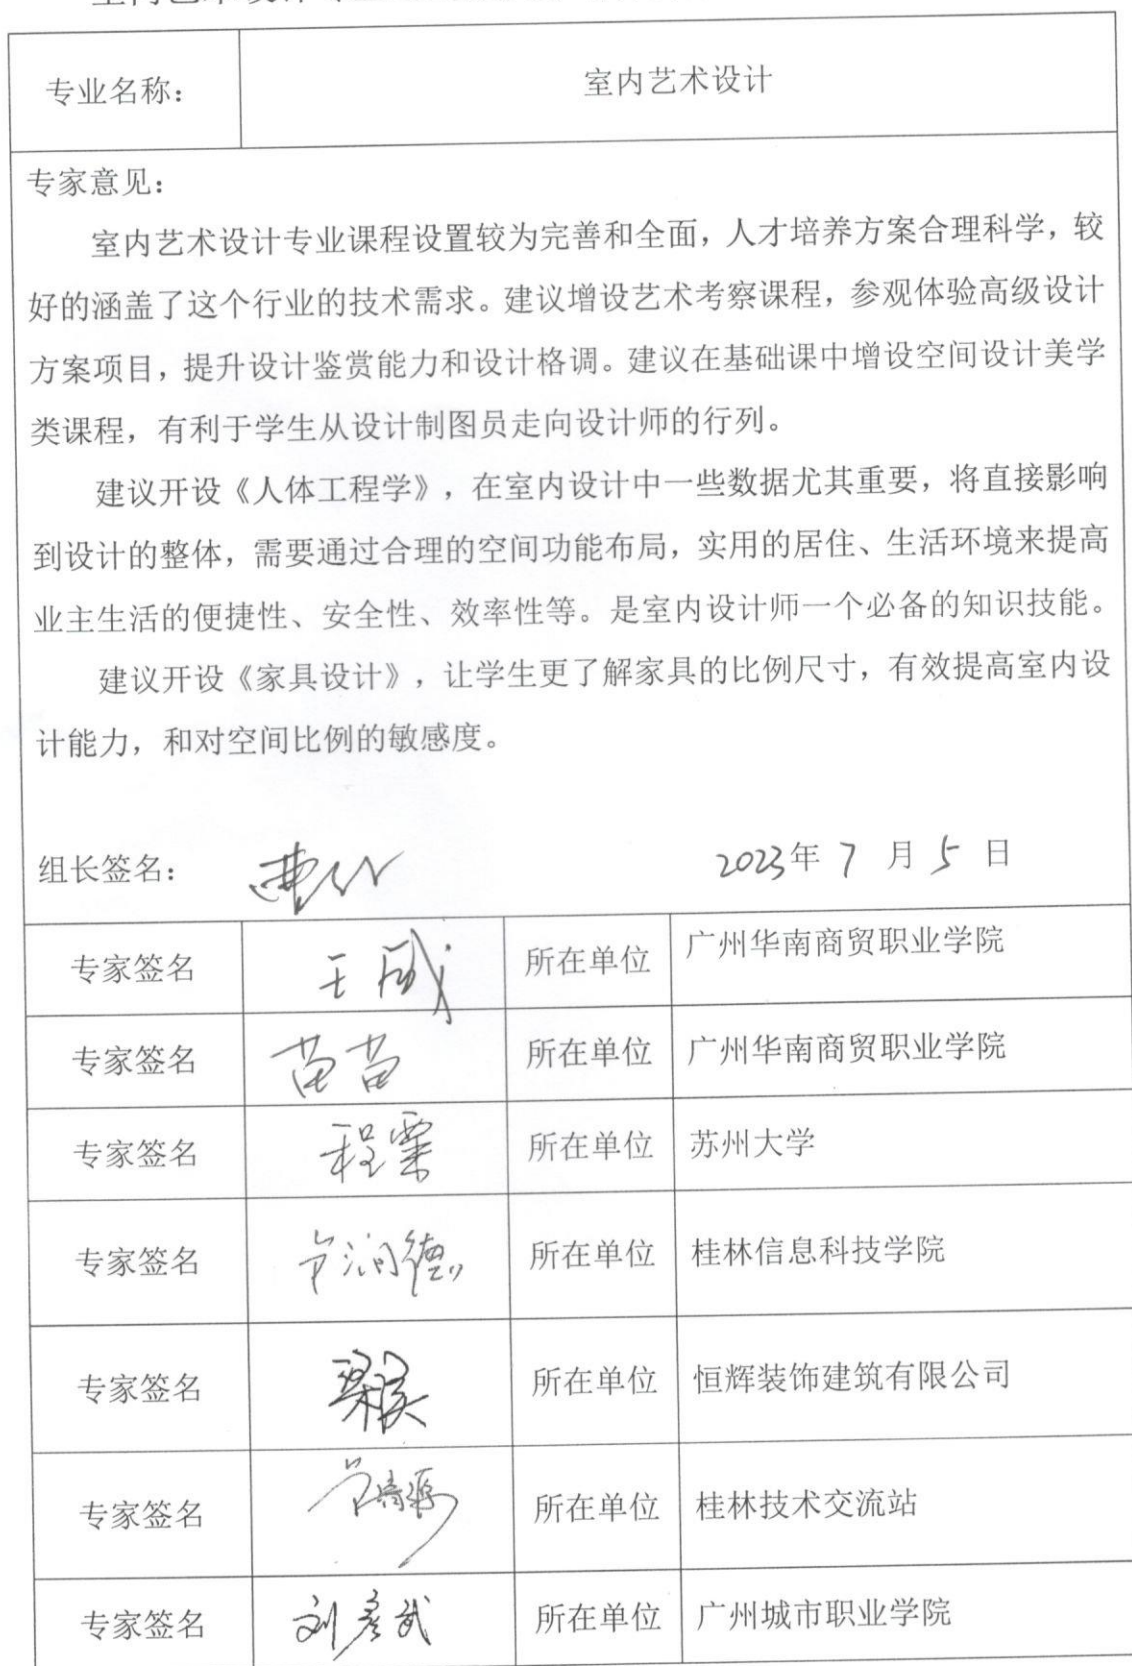 专业名称： 室内艺术设计
专家意见：
室内艺术设计专业课程设置较为完善和全面，人才培养方案合理科学，较
好的涵盖了这个行业的技术需求。建议增设艺术考察课程，参观体验高级设计
方案项目，提升设计鉴赏能力和设计格调。建议在基础课中增设空间设计美学
类课程，有利于学生从设计制图员走向设计师的行列。
建议开设《人体工程学》，在室内设计中一些数据尤其重要，将直接影响
到设计的整体，需要通过合理的空间功能布局，实用的居住、生活环境来提高
业主生活的便捷性、安全性、效率性等。是室内设计师一个必备的知识技能。
建议开设《家具设计》，让学生更了解家具的比例尺寸，有效提高室内设
计能力，和对空间比例的敏感度。
组长签名： 2023年 7 月 5 日
专家签名 王威 所在单位 广州华南商贸职业学院
专家签名 苗苗 所在单位 广州华南商贸职业学院
专家签名 程粟 所在单位 苏州大学
专家签名 所在单位 桂林信息科技学院
专家签名 所在单位 恒辉装饰建筑有限公司
专家签名 所在单位 桂林技术交流站
专家签名 刘彦武 所在单位 广州城市职业学院